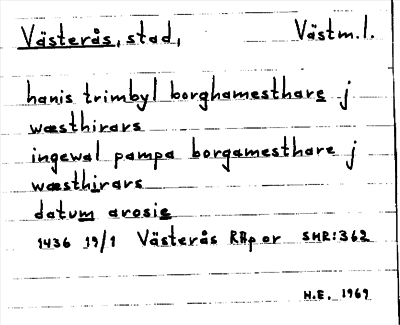 Västerås, stad, Västm.l.
hanis trimbyl borghamesthare j
wæsthirars
ingewal pampa borgamesthare j
wæsthirars
datum arosie
1436 19/1 Västerås RAp or SMR:362
H.E. 1969